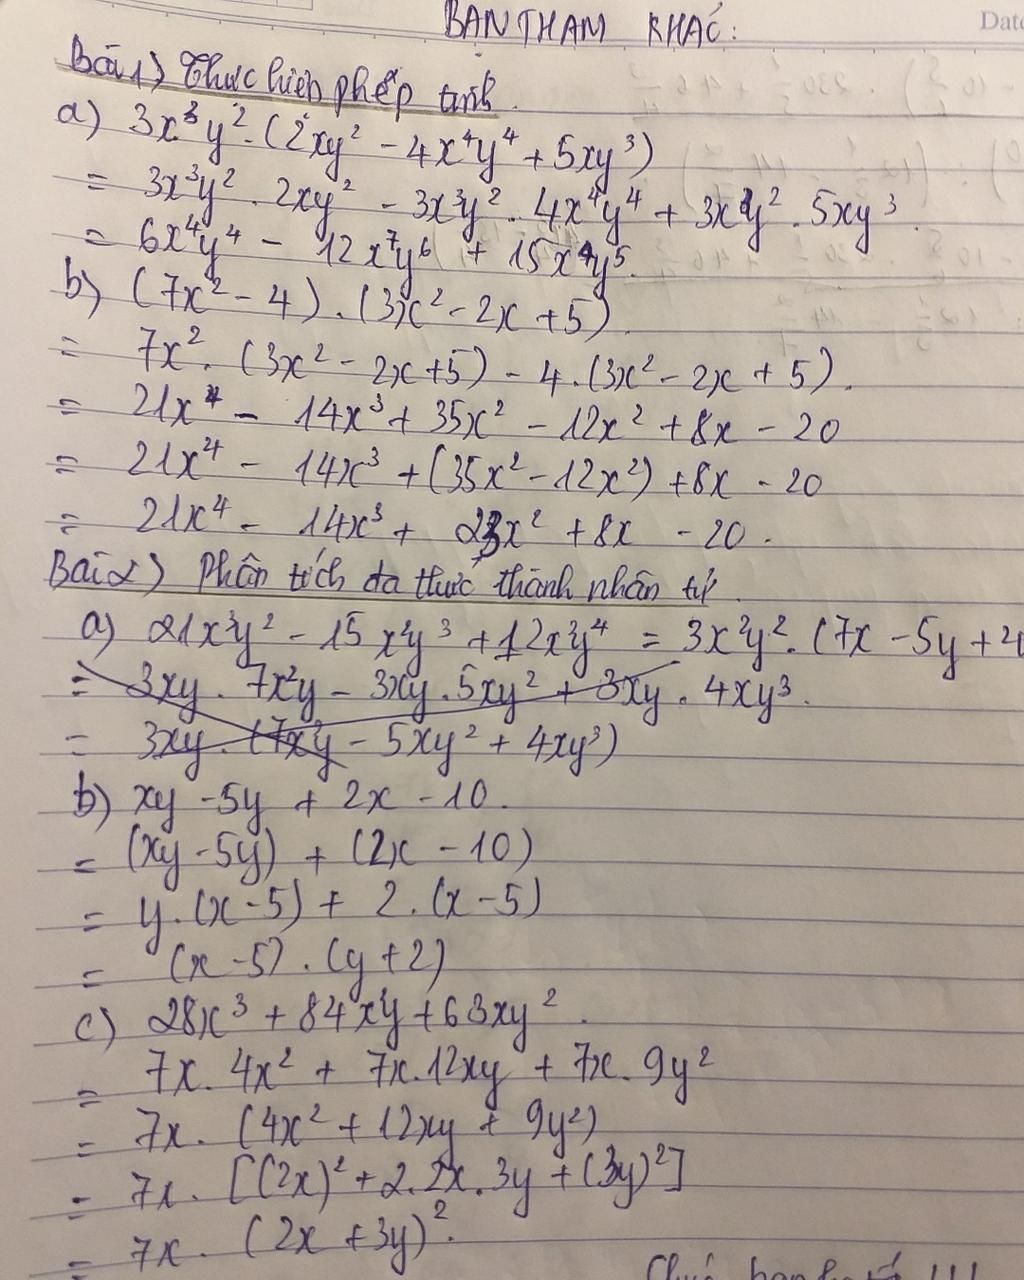 BẠN THAM KHẢO:
Date
Bài 1) Thực hiện phép tính.
a) 3x³y².(2xy² - 4x⁴y⁴ + 5xy³)
= 3x³y² . 2xy² - 3x³y² . 4x⁴y⁴ + 3x³y² . 5xy³.
= 6x⁴y⁴ - 12x⁷y⁶ + 15x⁴y⁵.
b) (7x² - 4) . (3x² - 2x + 5)
= 7x² . (3x² - 2x + 5) - 4 . (3x² - 2x + 5).
= 21x⁴ - 14x³ + 35x² - 12x² + 8x - 20
= 21x⁴ - 14x³ + (35x² - 12x²) + 8x - 20
= 21x⁴ - 14x³ + 23x² + 8x - 20.
Bài 2) Phân tích đa thức thành nhân tử.
a) 21x³y² - 15x²y³ + 12x²y⁴ = 3x²y² . (7x - 5y + 4
= 3xy . 7x²y - 3xy . 5xy² + 3xy . 4xy³.
= 3xy . (7x²y - 5xy² + 4xy³)
b) xy - 5y + 2x - 10.
= (xy - 5y) + (2x - 10)
= y.(x - 5) + 2.(x - 5)
= (x - 5) . (y + 2)
c) 28x³ + 84x²y + 63xy².
= 7x . 4x² + 7x . 12xy + 7x . 9y²
= 7x . (4x² + 12xy + 9y²)
= 7x . [(2x)² + 2.2x.3y + (3y)²]
= 7x . (2x + 3y)².
Chúc bạn